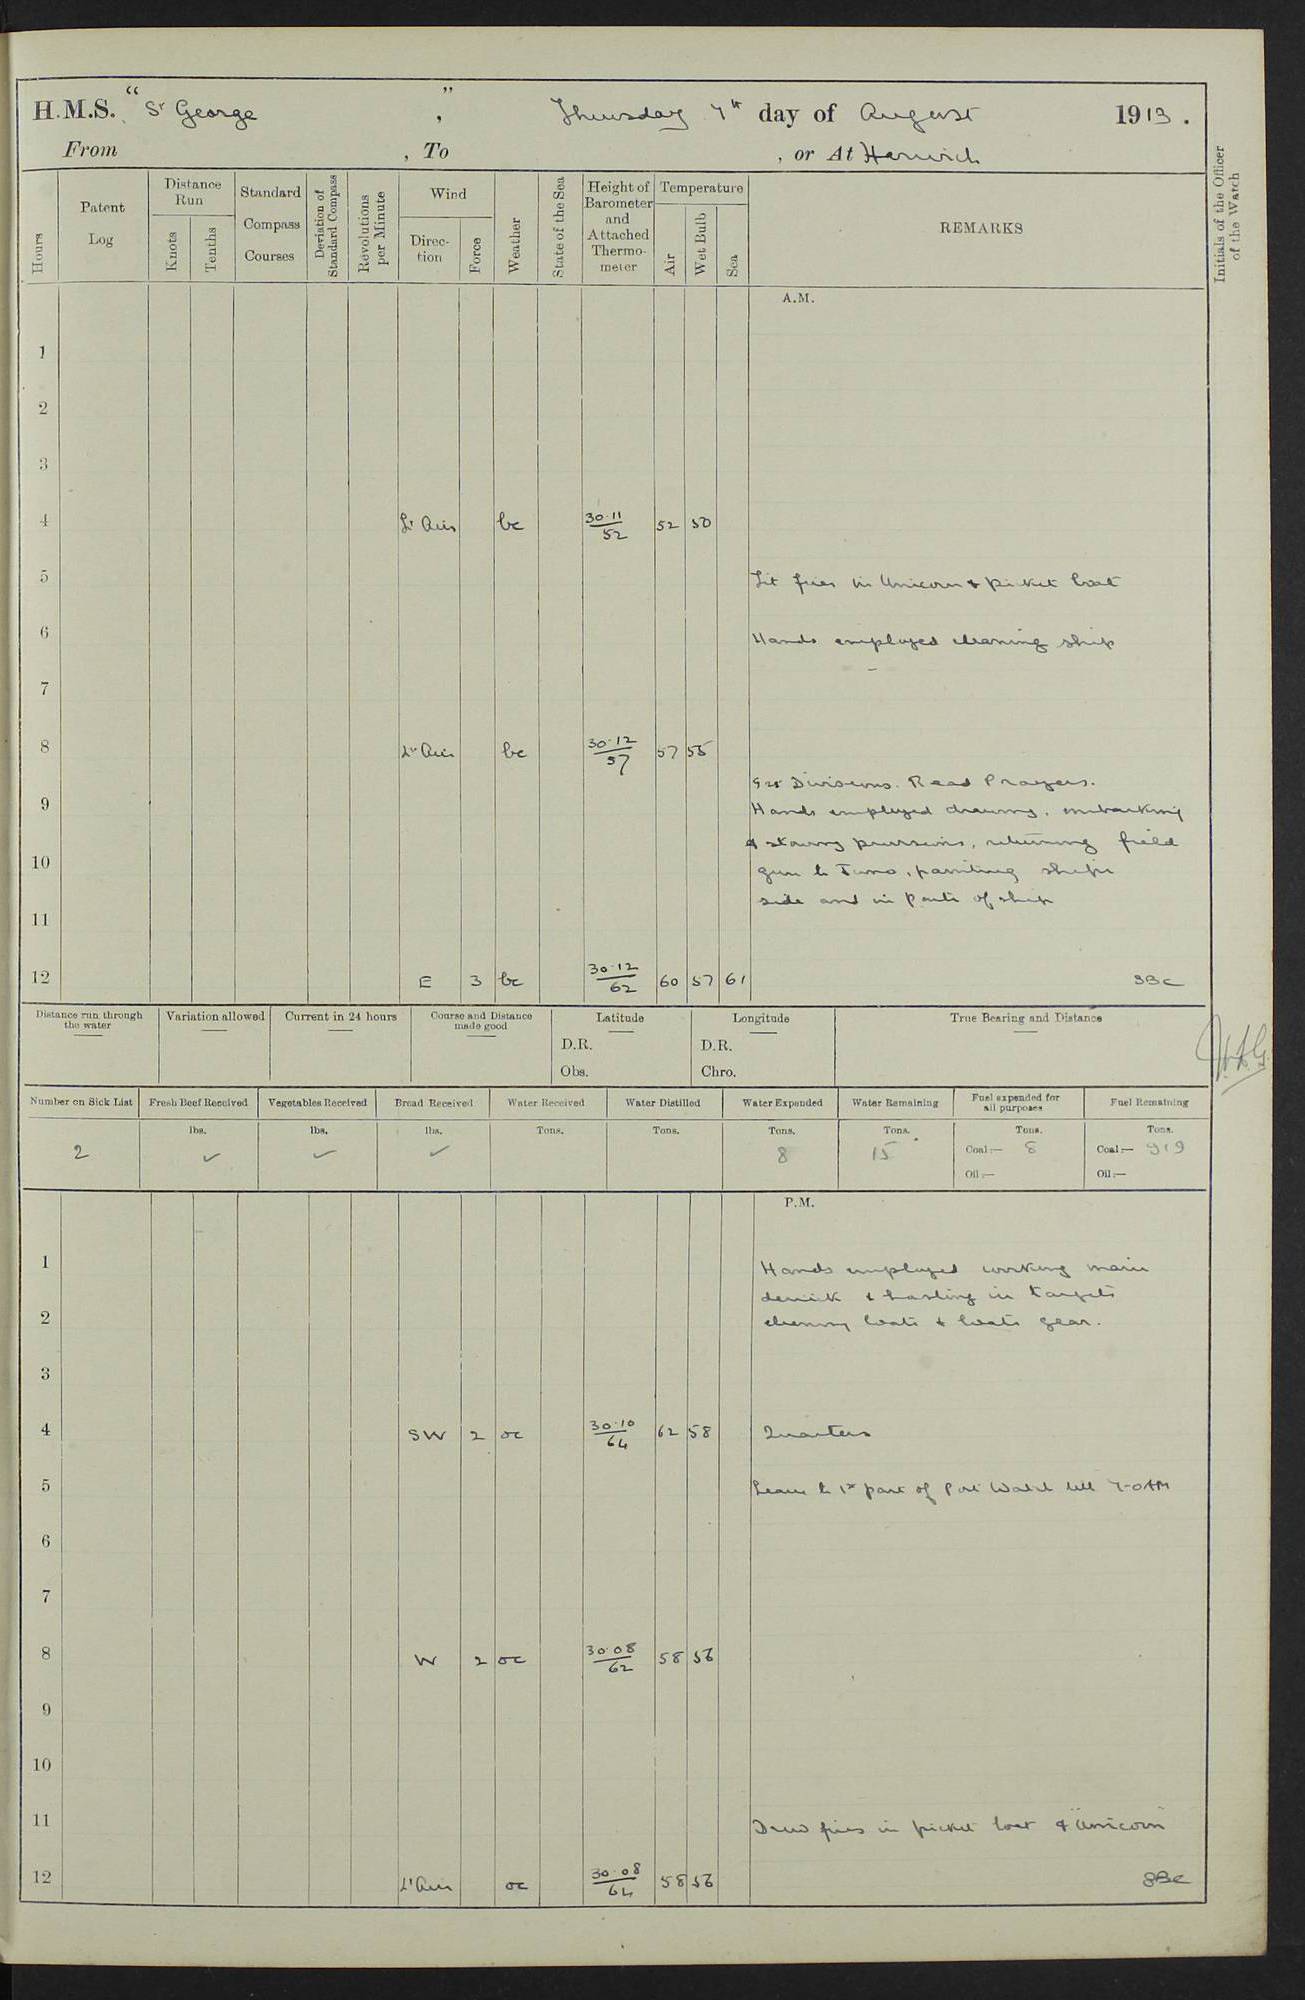 H.M.S. "St George", Thursday 7th day of August 1913.
From , To , or At Harwich
Hours
Patent Log
Distance Run
Knots
Tenths
Standard Compass Courses
Deviation of Standard Compass
Revolutions per Minute
Wind
Direction
Force
Weather
State of the Sea
Height of Barometer and Attached Thermometer
Temperature
Air
Wet Bulb
Sea
REMARKS
Initials of the Officer of the Watch
A.M.
1
2
3
4 Lt Airs bc 30.11/52 52 50
5 Lit fires in Unicorn & picket boat
6 Hands employed cleaning ship
7
8 Lt Airs bc 30.12/57 57 55
Divisions. Read Prayers.
9 Hands employed drawing, embarking
& stowing provisions, returning field
10 gun to, painting ships
side and in parts of ship
11
12 E 3 bc 30.12/62 60 57 61 SBC
Distance run through the water
Variation allowed
Current in 24 hours
Course and Distance made good
Latitude
D.R.
Obs.
Longitude
D.R.
Chro.
True Bearing and Distance
Number on Sick List
Fresh Beef Received
Vegetables Received
Bread Received
Water Received
Water Distilled
Water Expended
Water Remaining
Fuel expended for all purposes
Fuel Remaining
2
lbs. ✓
lbs. ✓
lbs. ✓
Tons.
Tons.
Tons. 8
Tons. 15
Tons. Coal:— 8
Oil:—
Tons. Coal:— 919
Oil:—
P.M.
1 Hands employed working main
derrick & hauling in targets
2 cleaning boats & boats gear.
3
4 SW 2 oc 30.10/64 62 58 Quarters
5 Leave to 1st part of Port Watch till 7-0 AM
6
7
8 W 2 oc 30.08/62 58 56
9
10
11 Drew fires in picket boat & "Unicorn"
12 Lt Airs oc 30.08/64 58 56 SBC